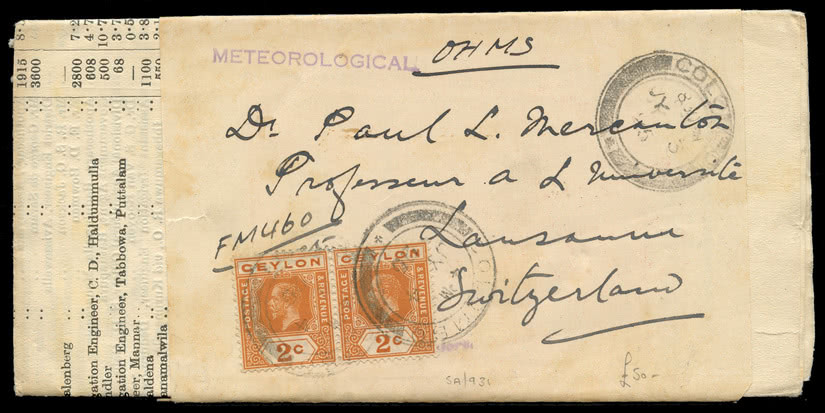 METEOROLOGICAL
OHMS
Dr. Paul L. Mercanton
Professeur a L Université
Lausanne
Switzerland
FM460
CEYLON
POSTAGE
& REVENUE
2c
CEYLON
POSTAGE
& REVENUE
2c
COL
SA/931
£50-
1915
3600
2800
608
500
68
1100
7·2
4·7
10·7
3·7
0·5
alenberg
gation Engineer, C. D., Haldummulla
ndler
gation Engineer, Tabbowa, Puttalam
eer, Mannar
aldena
anamalwila